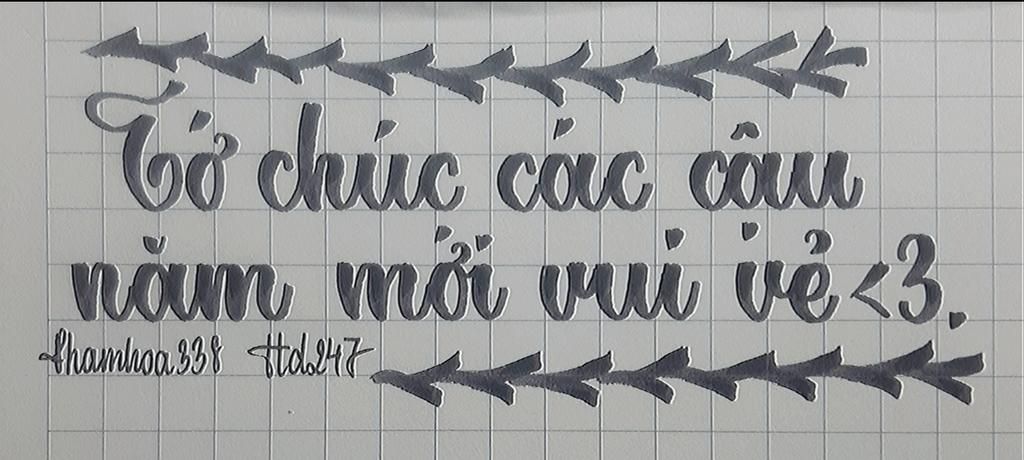 Tớ chúc các câụ
năm mới vui vẻ <3.
Phamhoa338 Hd247